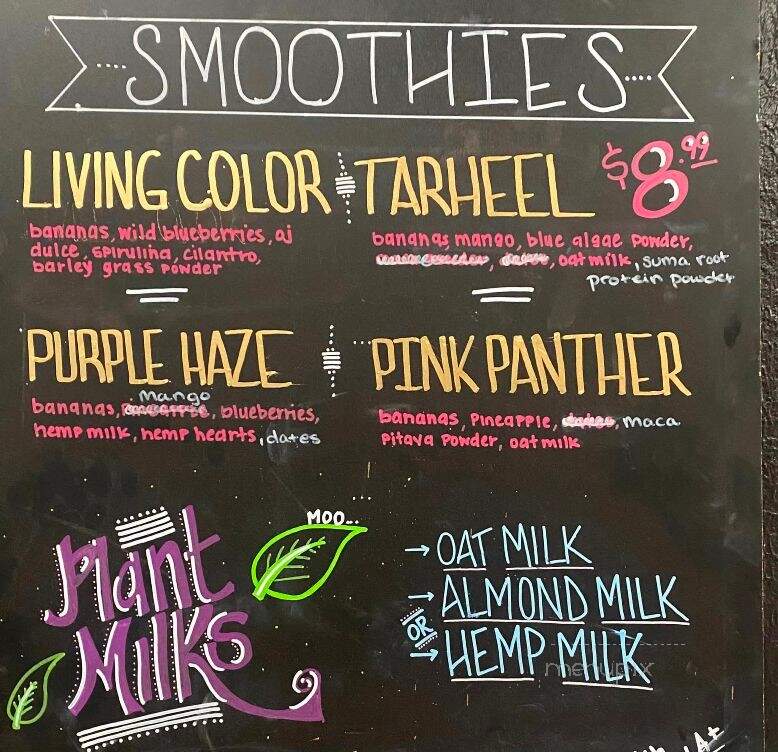 SMOOTHIES
LIVING COLOR
bananas, wild blueberries, aj
dulce, spirulina, cilantro,
barley grass powder
TARHEEL $8.99
bananas mango, blue algae powder,
oatmilk, suma root
protein powder
PURPLE HAZE
mango
bananas, blueberries,
hemp milk, hemp hearts, dates
PINK PANTHER
bananas, pineapple, maca
pitaya powder, oatmilk
Plant
Milks
MOO...
→ OAT MILK
→ ALMOND MILK
OR
→ HEMP MILK
menupix